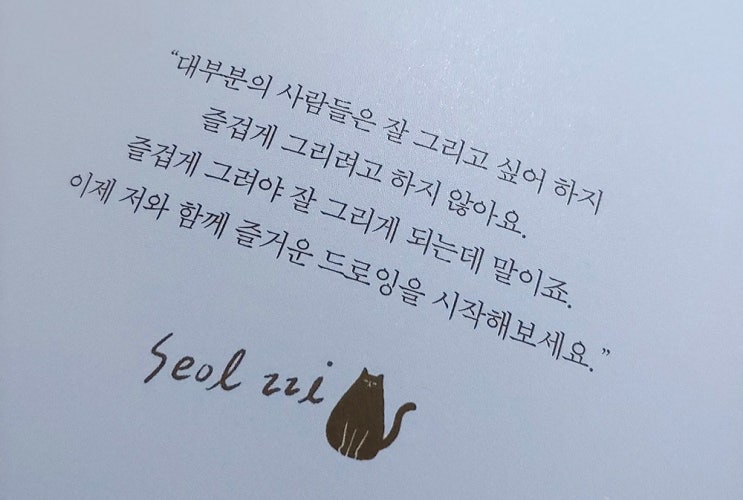 “대부분의 사람들은 잘 그리고 싶어 하지
즐겁게 그리려고 하지 않아요.
즐겁게 그려야 잘 그리게 되는데 말이죠.
이제 저와 함께 즐거운 드로잉을 시작해보세요.”
Seol zzi